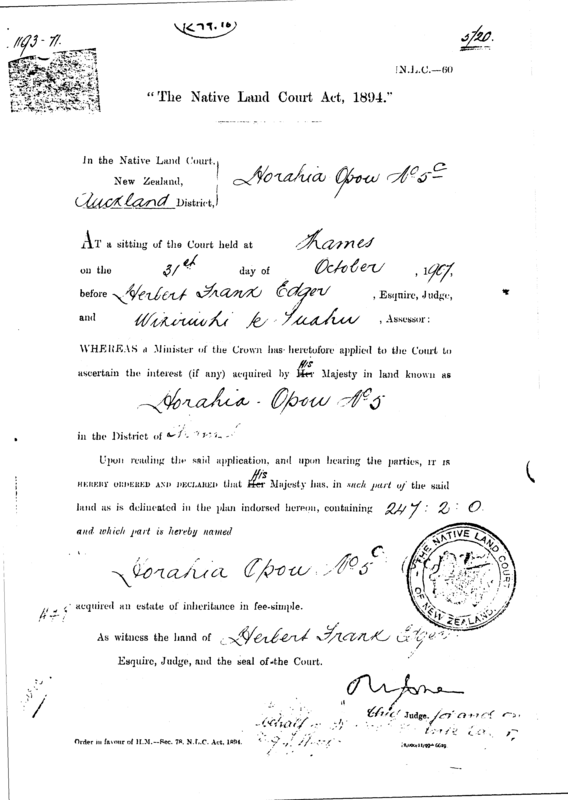 K 79.10
1193-71.
5/20.
[N.L.C.—60
"The Native Land Court Act, 1894."
In the Native Land Court,
New Zealand,
Auckland District,
Horahia Opou No 5C
AT a sitting of the Court held at Thames
on the 31st day of October, 1907,
before Herbert Frank Edger, Esquire, Judge,
and te Tuahu, Assessor:
WHEREAS a Minister of the Crown has heretofore applied to the Court to
His
ascertain the interest (if any) acquired by Her Majesty in land known as
Horahia - Opou No 5
in the District of
Upon reading the said application, and upon hearing the parties, IT IS
His
HEREBY ORDERED AND DECLARED that Her Majesty has, in such part of the said
land as is delineated in the plan indorsed hereon, containing 247:2:0.
and which part is hereby named
Horahia Opou No 5C
THE NATIVE LAND COURT
OF NEW ZEALAND.
acquired an estate of inheritance in fee-simple.
As witness the hand of Herbert Frank Edger
Esquire, Judge, and the seal of the Court.
Chief Judge. for and on
behalf
Order in favour of H.M.—Sec. 78, N.L.C. Act, 1894.